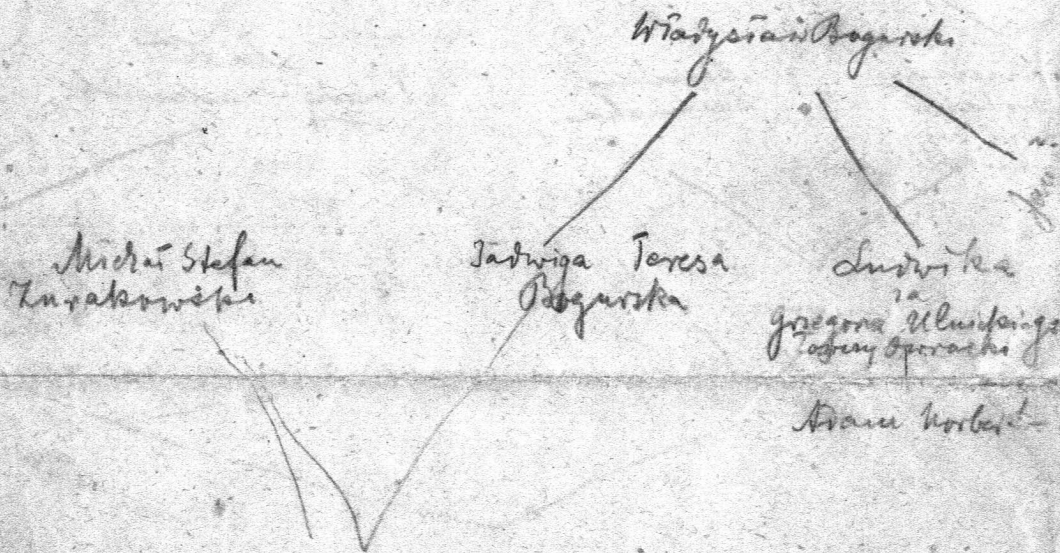 Władysław Bogurski
Jan
Michał Stefan
Żurakowski
Jadwiga Teresa
Bogurska
Ludwika
za
Grzegorza Ulnickiego
Adam Norbert